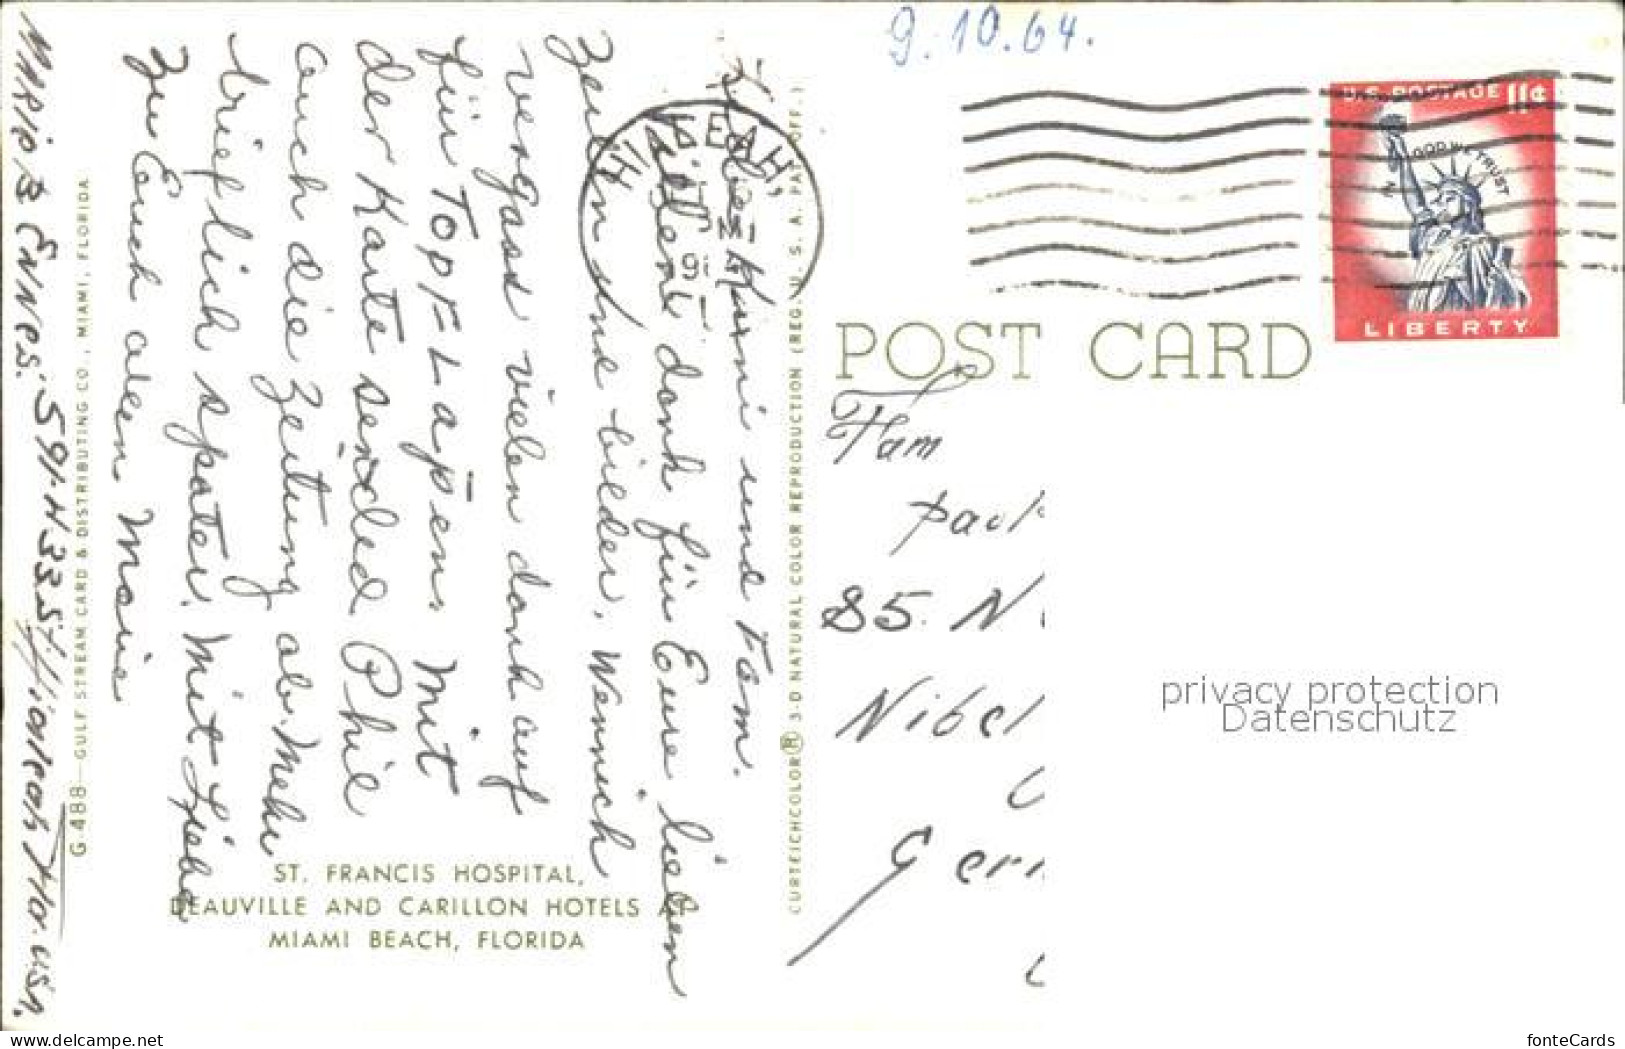 9.10.64.
U.S. POSTAGE 11¢
IN GOD WE TRUST
LIBERTY
HIALEAH,
POST CARD
Fam
85. N
Nibel
Ger
privacy protection
Datenschutz
und Fam.
vielen dank für Eure lieben
Zeilen und bilder. Wenn ich
vergass vielen dank auf
für TOPFLAPEN. Mit
der Karte sended Phil
auch die Zeitung ab. Mehr
brieflich später. Mit Liebe
zu Euch allen Marie
ST. FRANCIS HOSPITAL,
DEAUVILLE AND CARILLON HOTELS AT
MIAMI BEACH, FLORIDA
CURTEICHCOLOR® 3-D NATURAL COLOR REPRODUCTION (REG. U. S. A. PAT. OFF.)
G 488—GULF STREAM CARD & DISTRIBUTING CO., MIAMI, FLORIDA
591 Hialeah Flor. USA.
fonteCards
www.delcampe.net